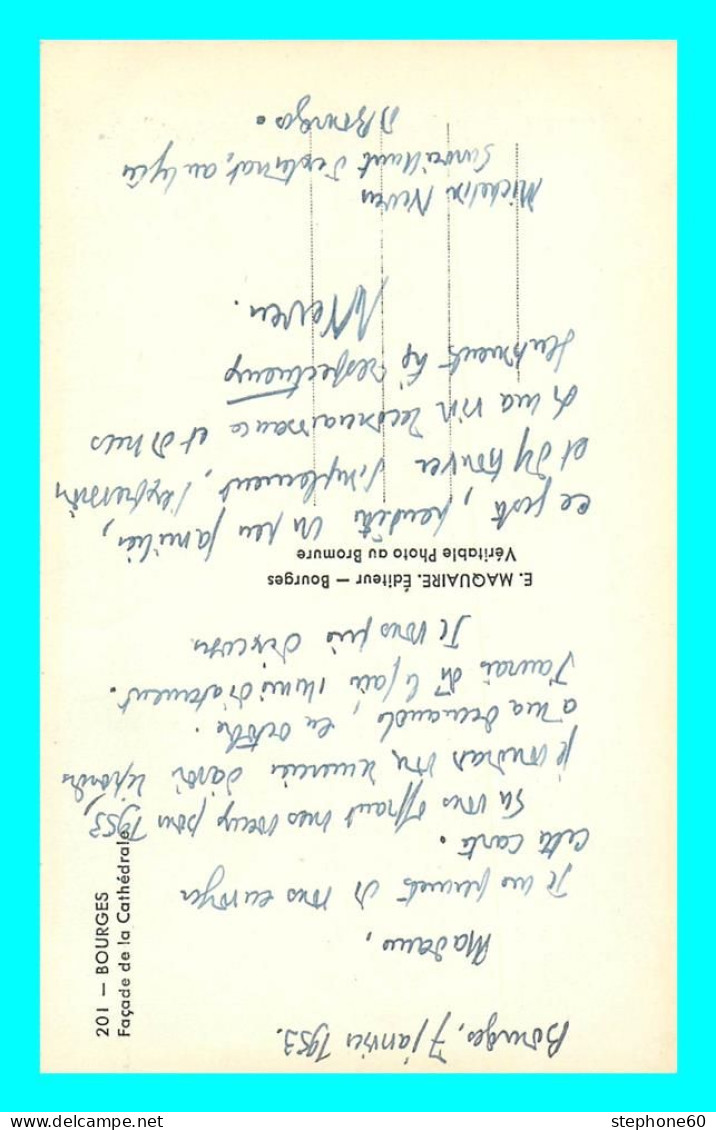 Bourges, 7 janvier 1953.
Madame,
Je me permets de vous envoyer
cette carte.
En vous offrant mes voeux pour 1953,
je voudrais vous remercier d'avoir répondu
à ma demande, en octobre.
J'aurais dû le faire immédiatement.
Je vous prie d'excuser
ce geste, peut-être un peu familier,
et d'y trouver simplement, l'expression
de ma vive reconnaissance et de mes
sentiments les respectueux
Neveu.
Micheline Neveu
Surveillante d'externat, au lycée
Bourges.
E. MAQUAIRE. Éditeur — Bourges
Véritable Photo au Bromure
201 — BOURGES
Façade de la Cathédrale
stephone60